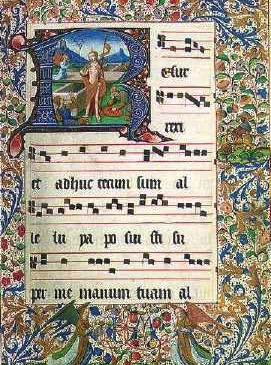 Resur
rexi
et adhuc tecum sum al
le lu ya po sui sti su
per me manum tuam al